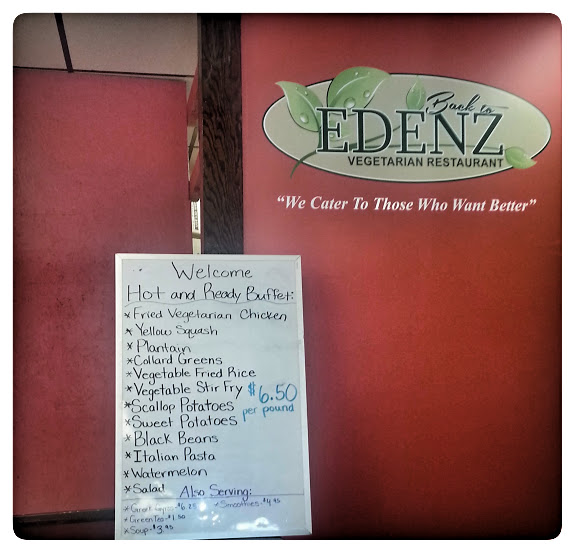 Back to
EDENZ
VEGETARIAN RESTAURANT
"We Cater To Those Who Want Better"
Welcome
Hot and Ready Buffet:
*Fried Vegetarian Chicken
*Yellow Squash
*Plantain
*Collard Greens
*Vegetable Fried Rice
*Vegetable Stir Fry
*Scallop Potatoes
*Sweet Potatoes
$6.50
per pound
*Black Beans
*Italian Pasta
*Watermelon
*Salad
Also Serving:
*Smoothies-$4.95
*Green Tea-$1.50
*Soup-$3.95